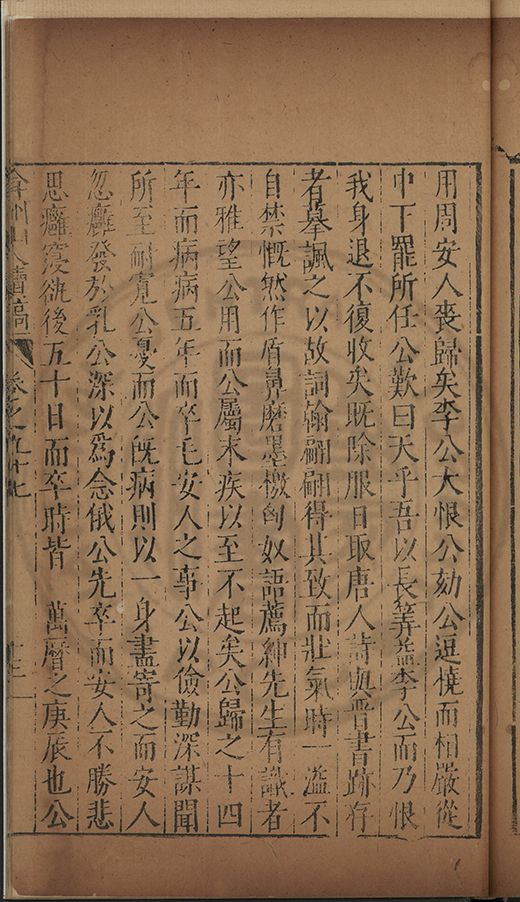 用周安人喪歸矣李公大恨公劾公逗撓而相嚴從
中下罷所任公歎曰天乎吾以長筭益李公而乃恨
我身退不復收矣既除服日取唐人詩與晉書跡存
者摹諷之以故詞翰翩翩得其致而壯氣時一溢不
自禁慨然作盾鼻磨墨檄匈奴語薦紳先生有識者
亦雅望公用而公屬末疾以至不起矣公歸之十四
年而病病五年而卒毛安人之事公以儉勤深謀聞
所至耐寬公憂而公既病則以一身盡寄之而安人
忽癰發於乳公深以爲念俄公先卒而安人不勝悲
思癰寖
後五十日而卒時皆 萬曆之庚辰也公
弇州山人續稿 卷之九十七 十三